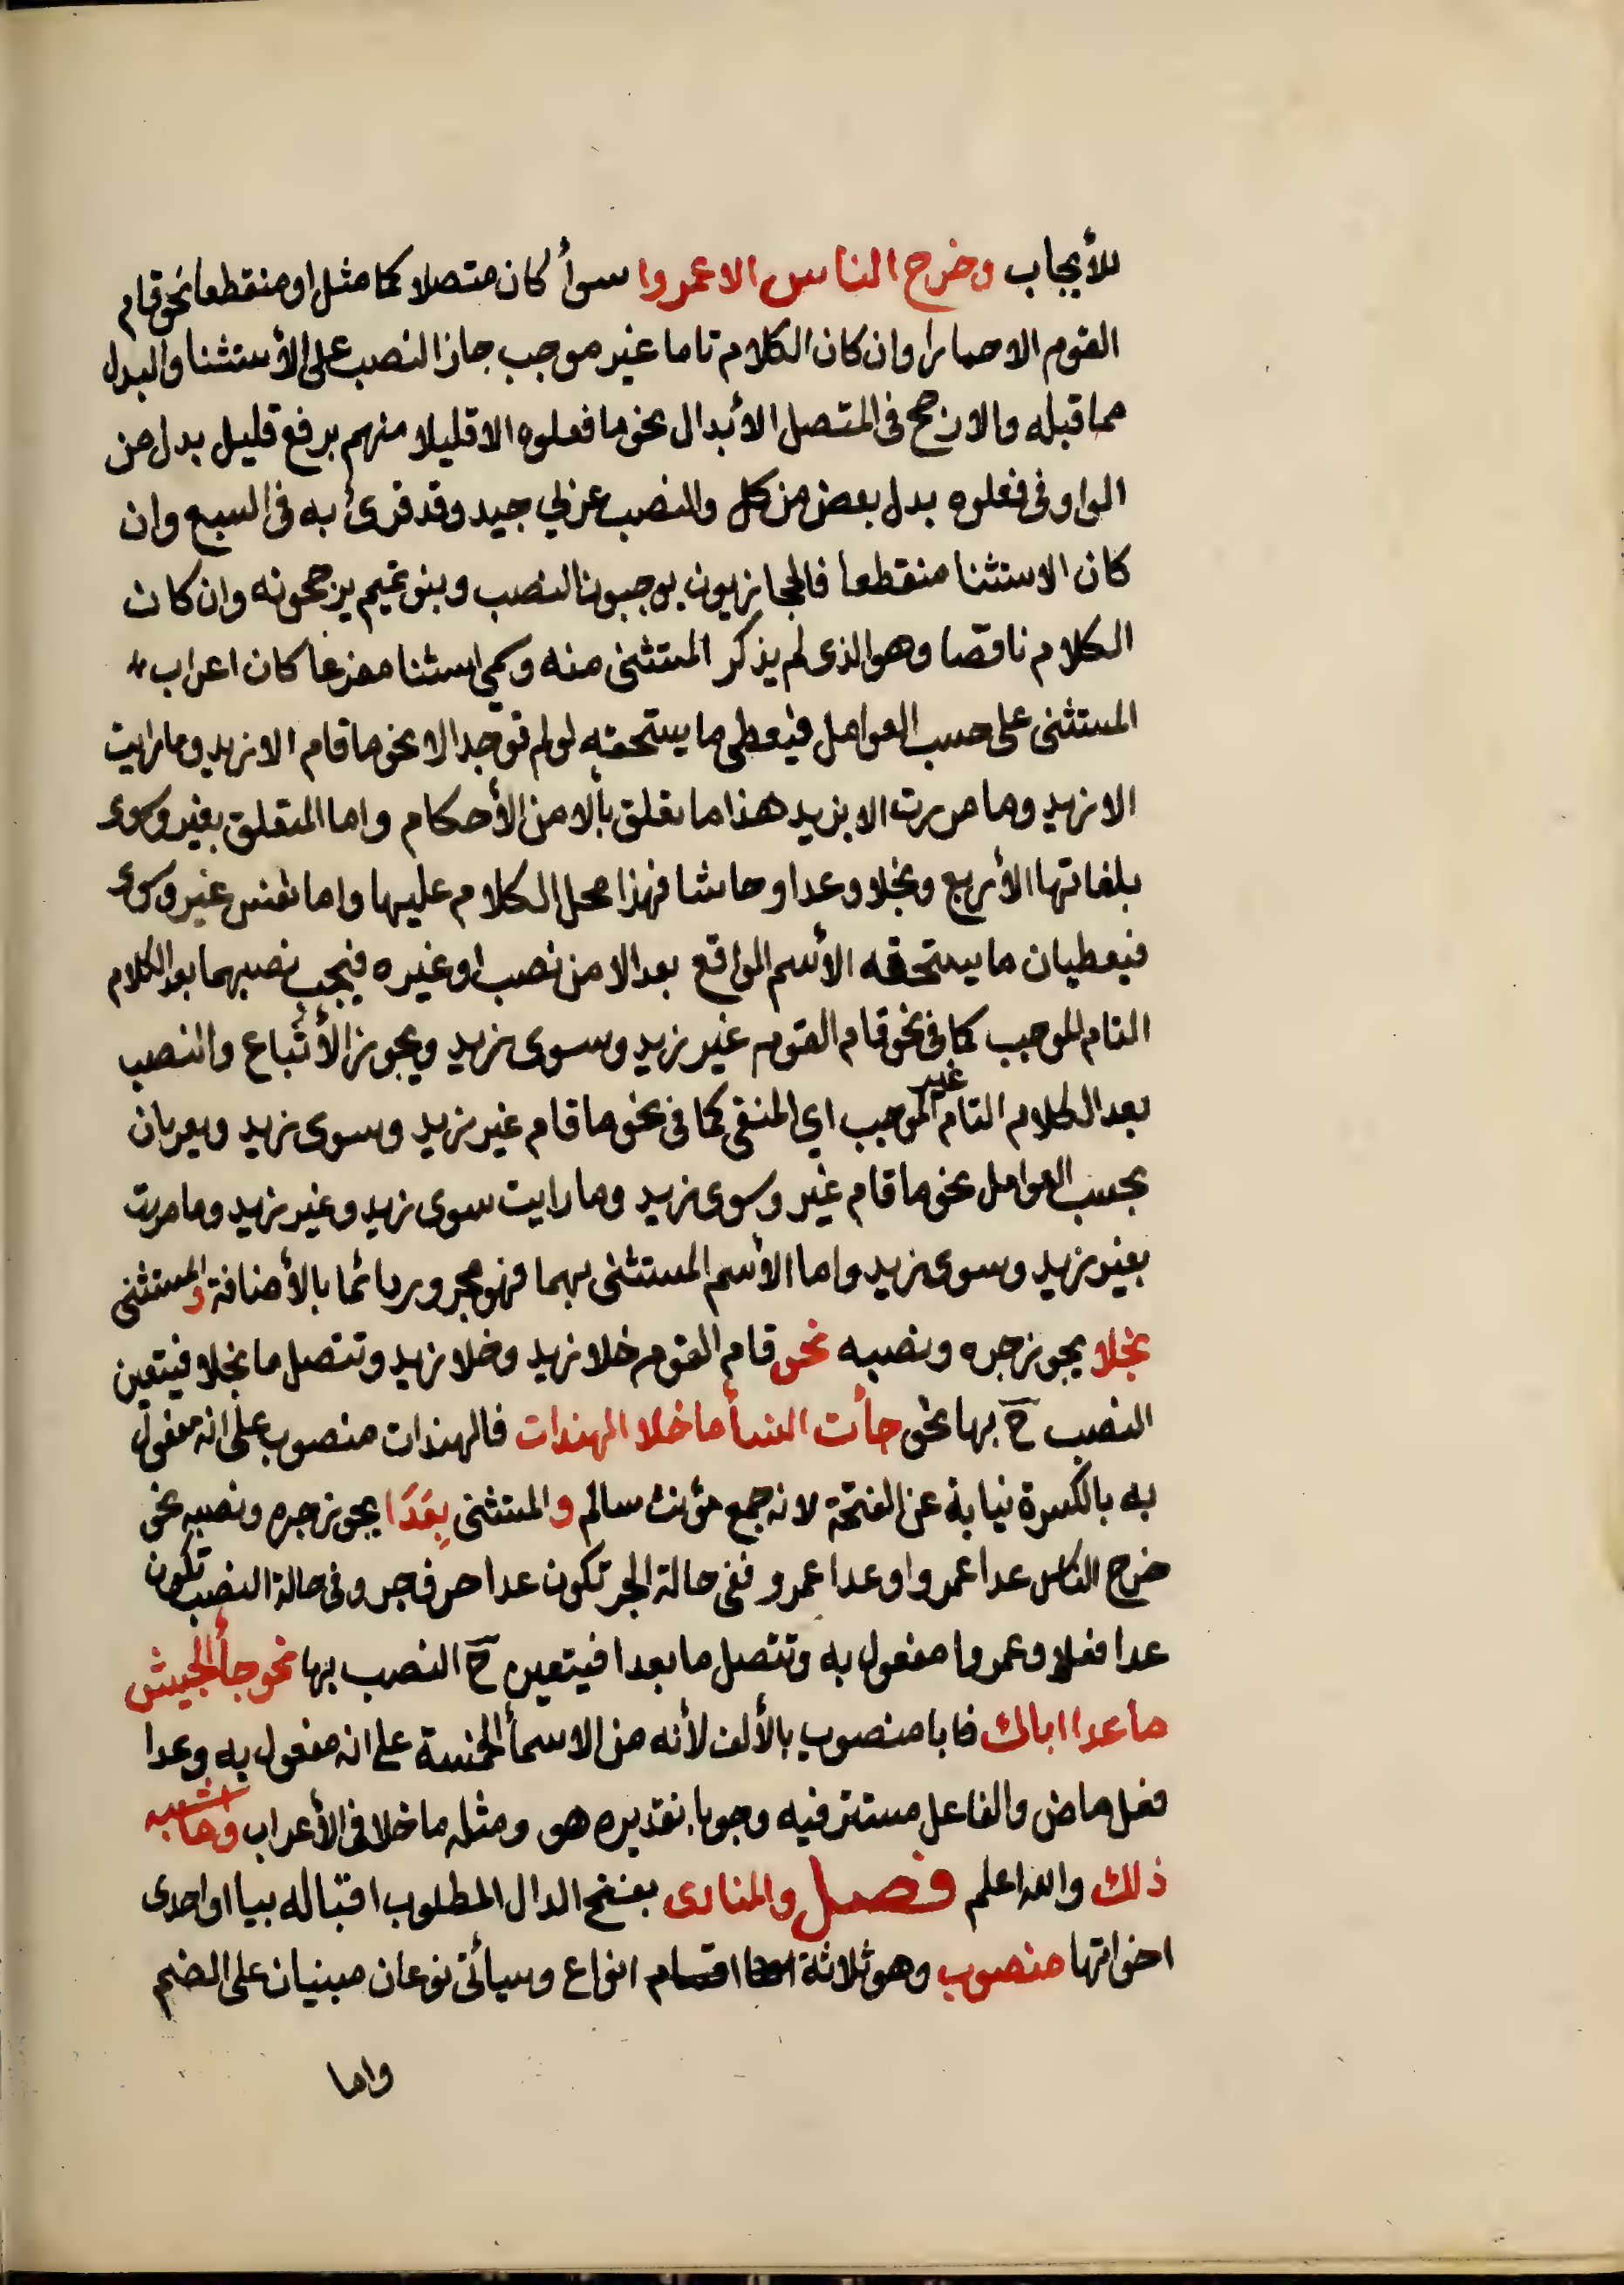 للأيجاب وخرج الناس الا عمروا سوأ كان متصلا كما مثل او منقطعا نحو قام
القوم الا حمارا وان كان الكلام تاما غير موجب جاز النصب على الأستثنا والبدل
مما قبله والارجح في المتصل الأبدال نحو ما فعلوه الا قليلا منهم برفع قليل بدل من
الواو في فعلوه بدل بعض من كل والنصب عربي جيد وقد قرئ به في السبع وان
كان الاستثنا منقطعا فالحجازيون يوجبون النصب وبنو تميم يرجحونه وان كان
الكلام ناقصا وهو الذى لم يذكر المستثنى منه وسمي استثنا مفرغا كان اعراب
المستثنى على حسب العوامل فيعطى ما يستحقه لو لم توجد الا نحو ما قام الا زيد وما رايت
الا زيد وما مررت الا بزيد هذا ما تعلق بألا من الأحكام واما المتعلق بغير وسوى
بلغاتها الأربع وبخلا وعدا وحاشا فهذا محل الكلام عليها واما نفس غير وسوى
فيعطيان ما يستحقه الأسم الواقع بعد الا من نصب او غيره فيجب نصبهما بعد الكلام
التام الموجب كما في نحو قام القوم غير زيد وسوى زيد ويجوز الأتباع والنصب
بعد الكلام التام غير الموجب اي المنفي كما في نحو ما قام غير زيد وسوى زيد ويعربان
بحسب العوامل نحو ما قام غير وسوى زيد وما رايت سوى زيد وغير زيد وما مررت
بغير زيد وسوى زيد واما الأسم المستثنى بهما فهو مجرور دائما بالأضافة والمستثنى
بخلا يجوز جره ونصبه نحو قام القوم خلا زيد وخلا زيد وتتصل ما بخلا فيتعين
النصب ح بها نحو جأت النسأ ما خلا الهندات فالهندات منصوب على انه مفعول
به بالكسرة نيابة عن الفتحة لانه جمع مؤنث سالم والمستثنى بِعَدَا يجوز جره ونصبه نحو
خرج الناس عدا عمروا وعدا عمرو ففي حالة الجر تكون عدا حرف جر وفي حالة النصب تكون
عدا فعلا وعمروا مفعول به وتتصل ما بعدا فيتعين ح النصب بها نحو جأ الجيش
ما عدا اباك فابا منصوب بالألف لأنه من الاسمأ الخمسة على انه مفعول به وعدا
فعل ماض والفاعل مستتر فيه وجوبا تقديره هو ومثله ما خلا في الأعراب وما اشبه
ذلك والله اعلم فصل والمنادى بفتح الدال المطلوب اقباله بيا او احدى
اخواتها منصوب وهو ثلاثة اقسام انواع وسيأتي نوعان مبنيان على الضم
واما